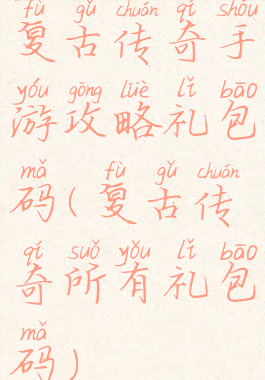 fù gǔ chuán qí shǒu
复古传奇手
yóu gōng lüè lǐ bāo
游攻略礼包
mǎ fù gǔ chuán
码(复古传
qí suǒ yǒu lǐ bāo
奇所有礼包
mǎ
码)